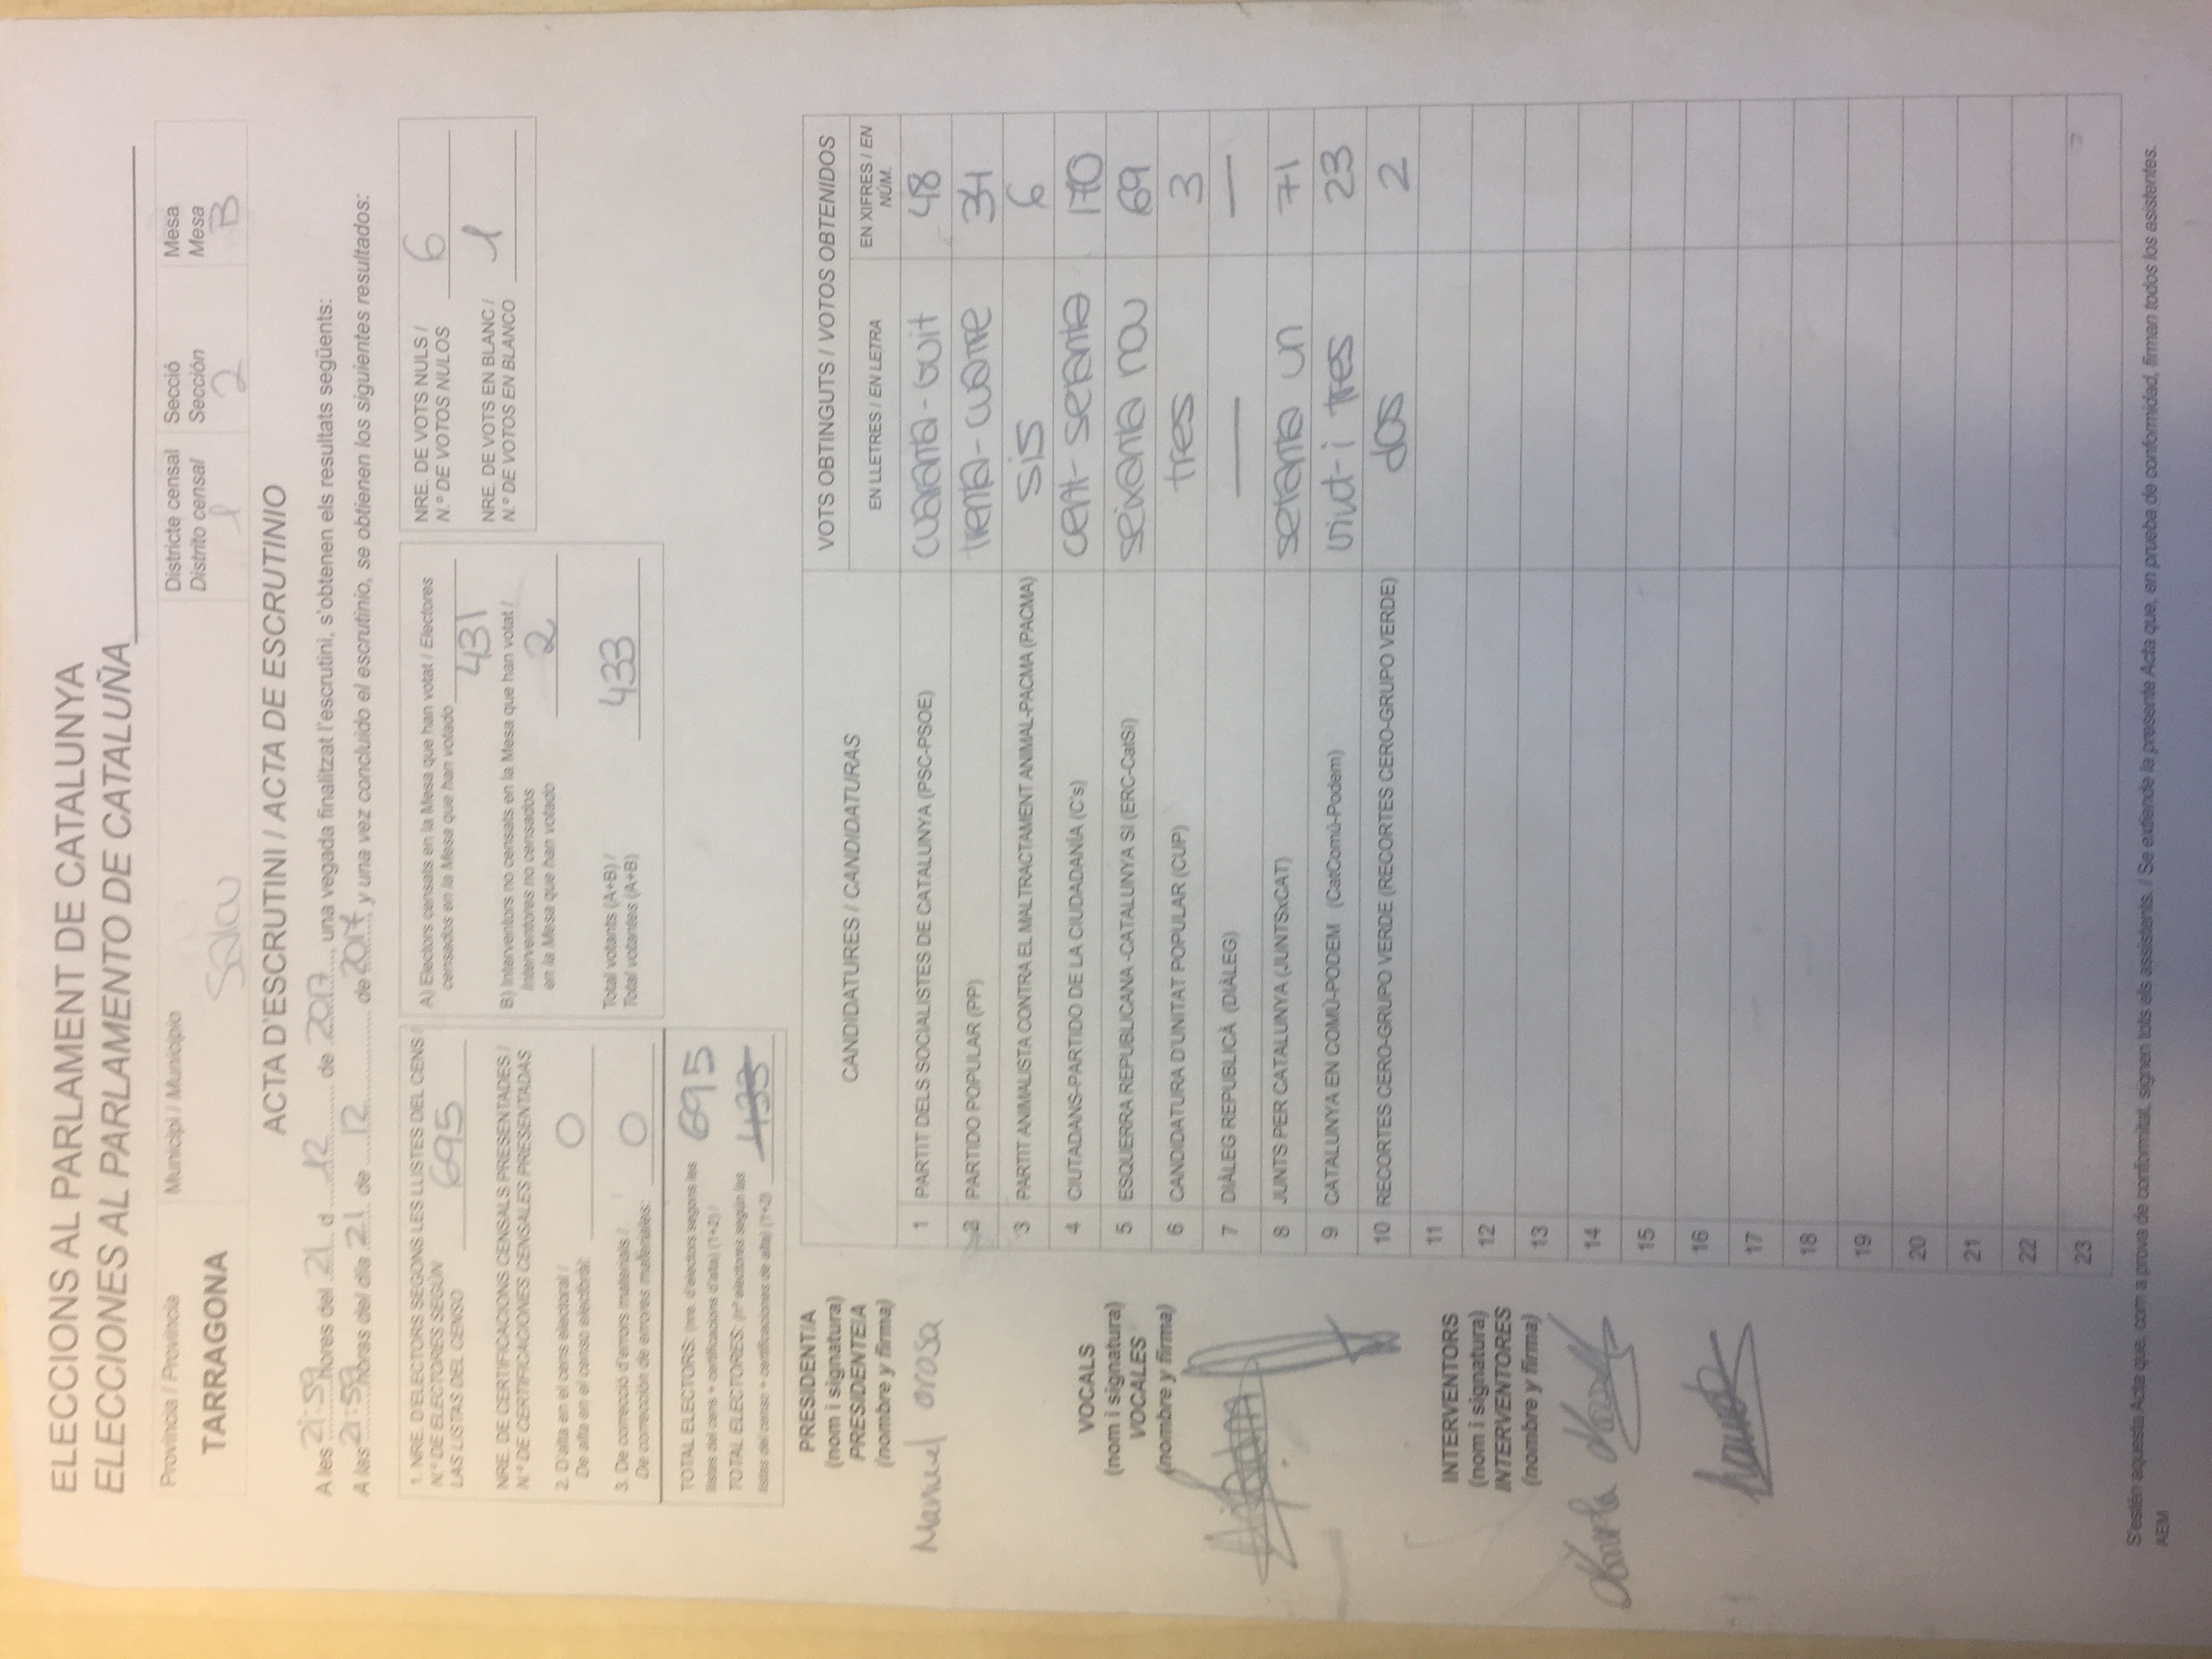 ELECCIONS AL PARLAMENT DE CATALUNYA
ELECCIONES AL PARLAMENTO DE CATALUÑA
Provincia / Provincia Municipi / Municipio Districte censal Secció Mesa
Distrito censal Sección Mesa
TARRAGONA Salou 1 2 B
ACTA D'ESCRUTINI / ACTA DE ESCRUTINIO
A les 21:59 hores del 21 d 12 de 2017, una vegada finalitzat l'escrutini, s'obtenen els resultats següents:
A las 21:59 horas del día 21 de 12 de 2017 y una vez concluido el escrutinio, se obtienen los siguientes resultados:
1. NRE. D'ELECTORS SEGONS LES LLISTES DEL CENS /
N.º DE ELECTORES SEGÚN
LAS LISTAS DEL CENSO 695
NRE. DE CERTIFICACIONS CENSALS PRESENTADES /
N.º DE CERTIFICACIONES CENSALES PRESENTADAS
2. D'alta en el cens electoral /
De alta en el censo electoral: 0
3. De correcció d'errors materials /
De corrección de errores materiales: 0
TOTAL ELECTORS: (nre. d'electors segons les
llistes del cens + certificacions d'alta) (1+2) / 695
TOTAL ELECTORES: (nº electores según las
listas del censo + certificaciones de alta) (1+2) 433
A) Electors censats en la Mesa que han votat / Electores
censados en la Mesa que han votado
431
B) Interventors no censats en la Mesa que han votat /
Interventores no censados
en la Mesa que han votado 2
Total votants (A+B) /
Total votantes (A+B) 433
NRE. DE VOTS NULS /
N.º DE VOTOS NULOS 6
NRE. DE VOTS EN BLANC /
N.º DE VOTOS EN BLANCO 1
PRESIDENT/A
(nom i signatura)
PRESIDENTE/A
(nombre y firma)
Manuel orosa
VOCALS
(nom i signatura)
VOCALES
(nombre y firma)
INTERVENTORS
(nom i signatura)
INTERVENTORES
(nombre y firma)
CANDIDATURES / CANDIDATURAS VOTS OBTINGUTS / VOTOS OBTENIDOS
EN LLETRES / EN LETRA EN XIFRES / EN NÚM.
1 PARTIT DELS SOCIALISTES DE CATALUNYA (PSC-PSOE) cuaranta-vuit 48
2 PARTIDO POPULAR (PP) trenta-cuatre 34
3 PARTIT ANIMALISTA CONTRA EL MALTRACTAMENT ANIMAL-PACMA (PACMA) sis 6
4 CIUTADANS-PARTIDO DE LA CIUDADANÍA (C's) cent-setanta 170
5 ESQUERRA REPUBLICANA -CATALUNYA SI (ERC-CatSí) seixanta nou 69
6 CANDIDATURA D'UNITAT POPULAR (CUP) tres 3
7 DIÀLEG REPUBLICÀ (DIÀLEG) — —
8 JUNTS PER CATALUNYA (JUNTSxCAT) setanta un 71
9 CATALUNYA EN COMÚ-PODEM (CatComú-Podem) vint-i tres 23
10 RECORTES CERO-GRUPO VERDE (RECORTES CERO-GRUPO VERDE) dos 2
11
12
13
14
15
16
17
18
19
20
21
22
23
S'estén aquesta Acta que, com a prova de conformitat, signen tots els assistents. / Se extiende la presente Acta que, en prueba de conformidad, firman todos los asistentes.
AEM